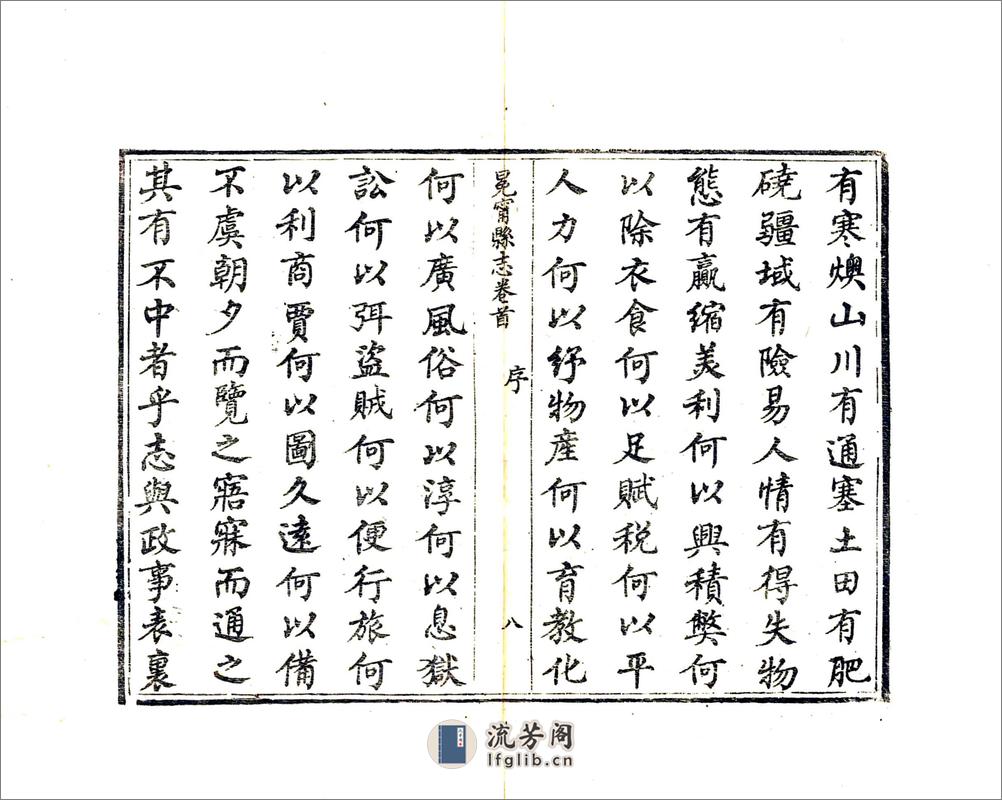 有寒燠山川有通塞土田有肥
磽疆域有險易人情有得失物
態有贏縮美利何以興積弊何
以除衣食何以足賦税何以平
人力何以紓物產何以育教化
冕甯縣志卷首
序
八
何以廣風俗何以淳何以息獄
訟何以弭盜賊何以便行旅何
以利商賈何以圖久遠何以備
不虞朝夕而覽之寤寐而通之
其有不中者乎志與政事表裏
流芳阁
lfglib.cn